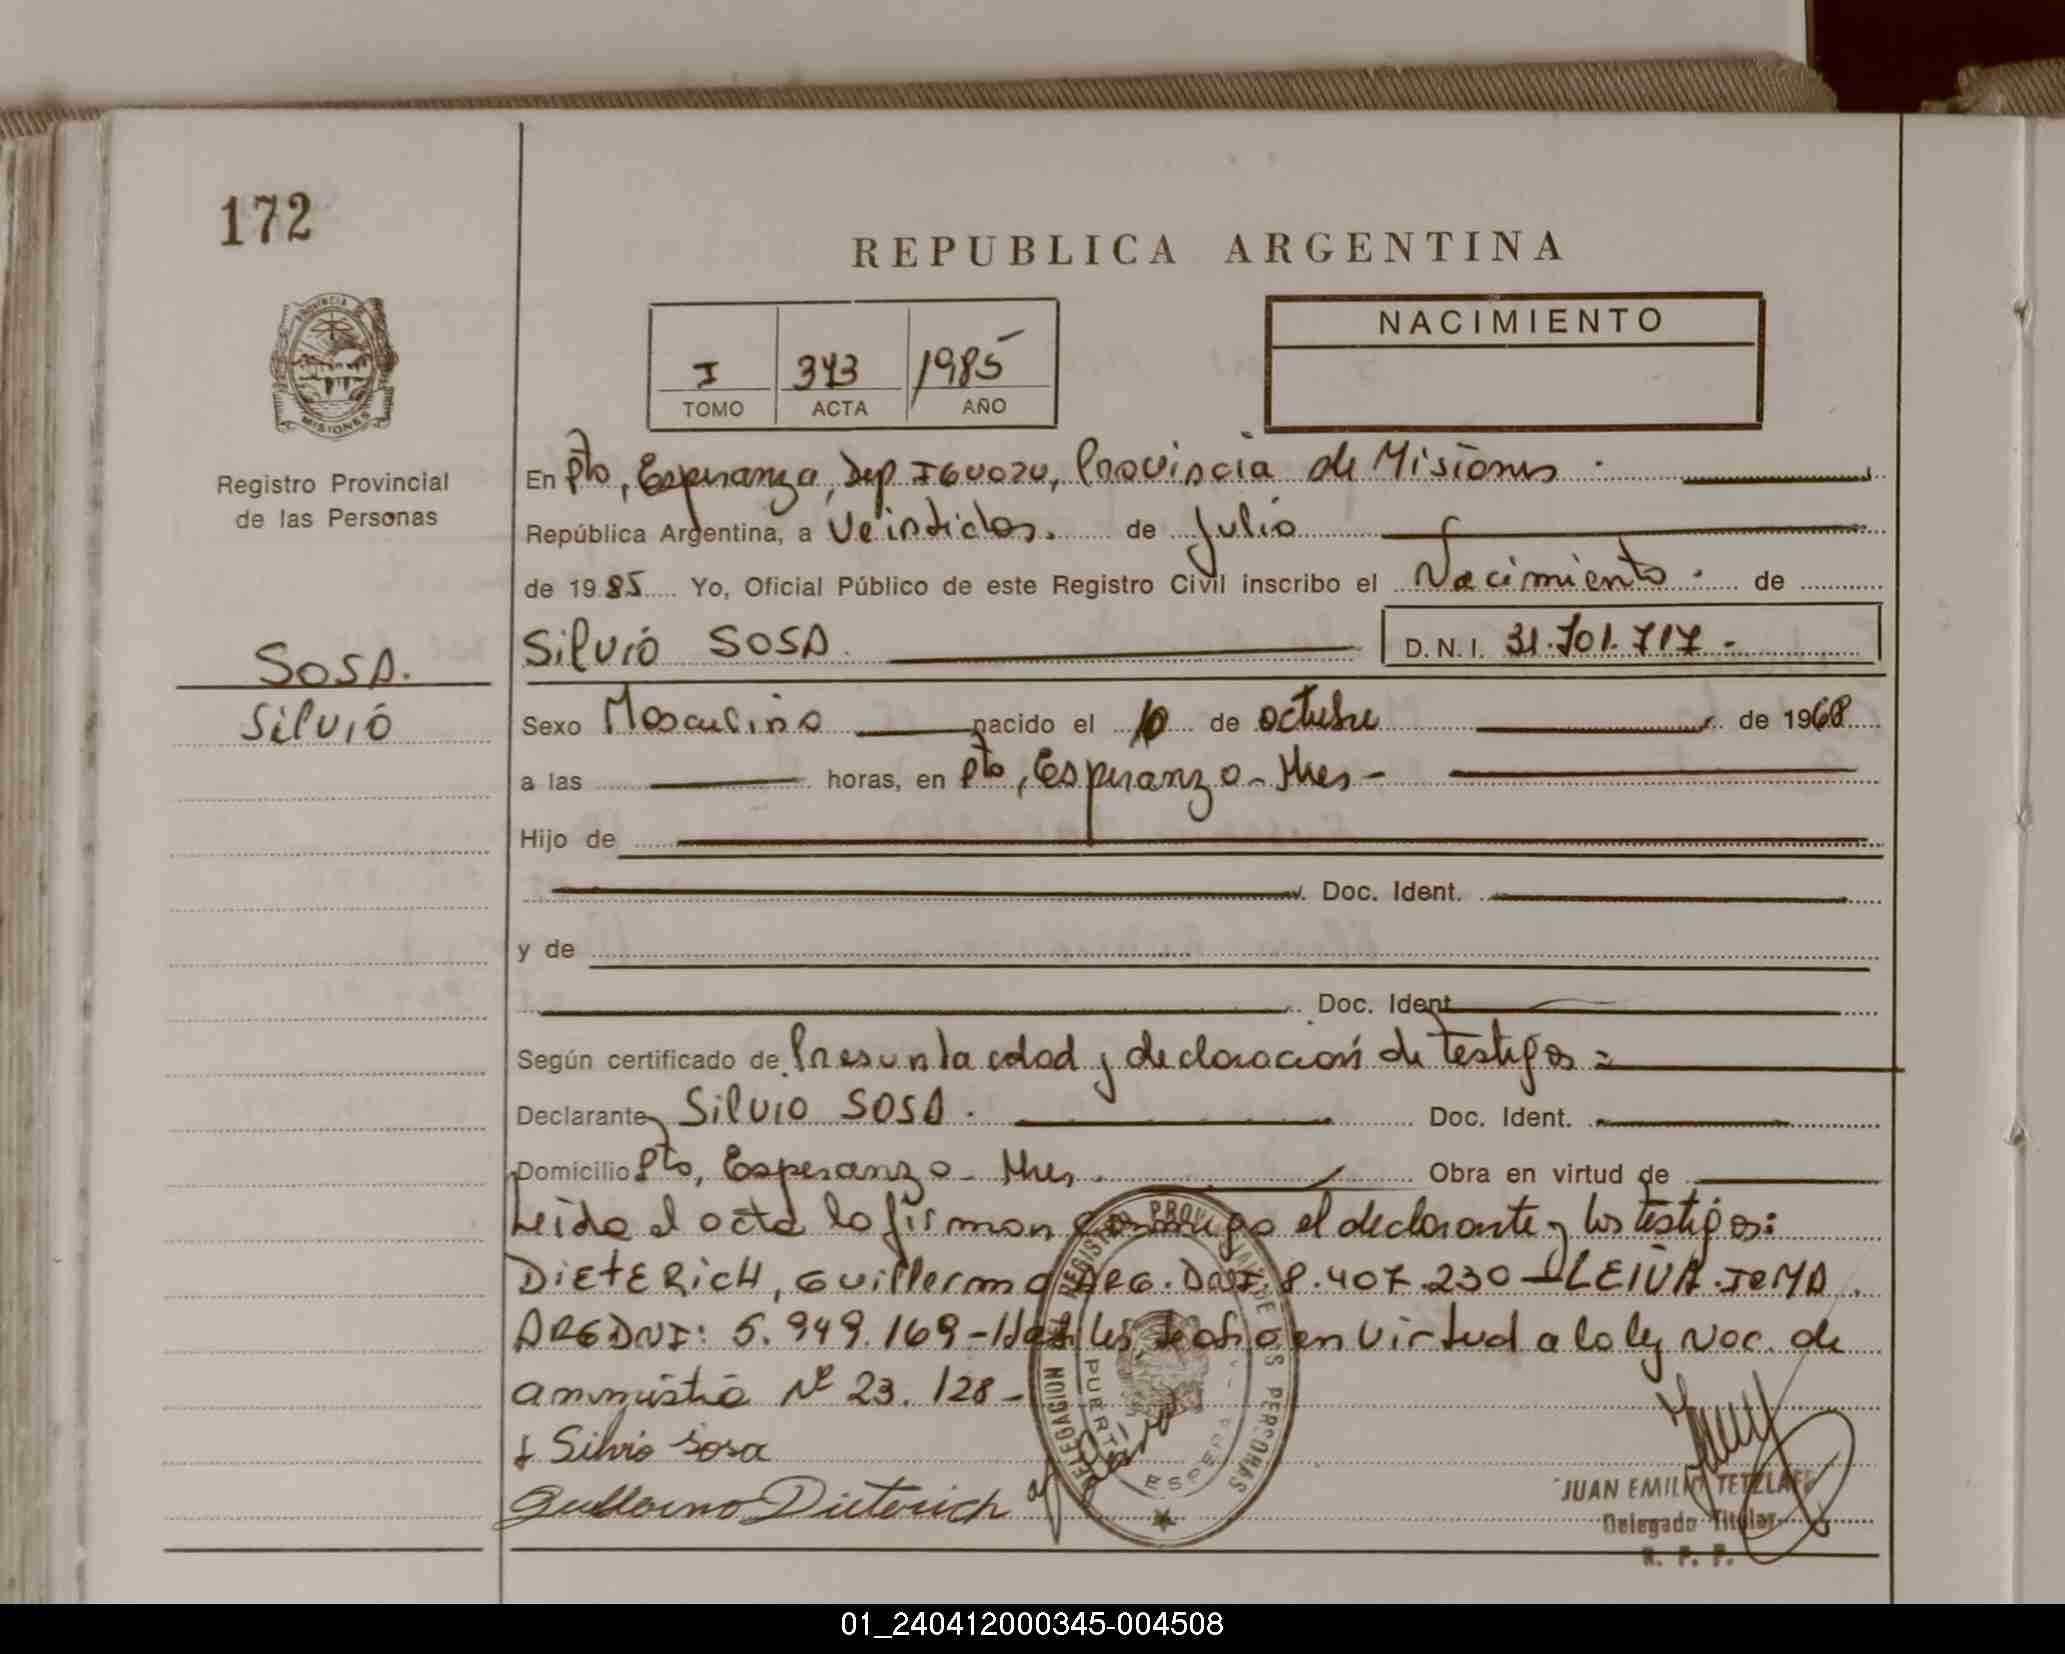 172
REPUBLICA ARGENTINA
PROVINCIA DE
MISIONES
Registro Provincial
de las Personas
I 343 1985
TOMO ACTA AÑO
NACIMIENTO
En Pto, Esperanza, Dep IGUAZU, Provincia de Misiones.
República Argentina, a Veintidos. de Julio
de 1985 Yo, Oficial Público de este Registro Civil inscribo el Nacimiento. de
SOSA.
Silvio
Silvio SOSA. D.N.I. 31.701.717-
Sexo Masculino nacido el 10 de octubre de 1968
a las horas, en Pto, Esperanza- Mnes-
Hijo de
Doc. Ident.
y de
Doc. Ident.
Según certificado de Presunta edad y declaracion de testigos=
Declarante Silvio SOSA. Doc. Ident.
Domicilio Pto, Esperanza- Mnes. Obra en virtud de
Leida el acta la firman conmigo el declarante y los testigos:
DIETERICH, Guillermo ARG. DNI. 8.407.230- LEIVA. IRMA.
ARG DNI: 5.949.169- en virtud a la ley Nac. de
amnistia Nº 23.128-
Silvio Sosa
Guillermo Dieterich
DELEGACION REGISTRO PROVINCIAL DE LAS PERSONAS
PUERTO ESPERANZA
JUAN EMILIO TETZLAFF
Delegado Titular
R. P. P.
01_240412000345-004508